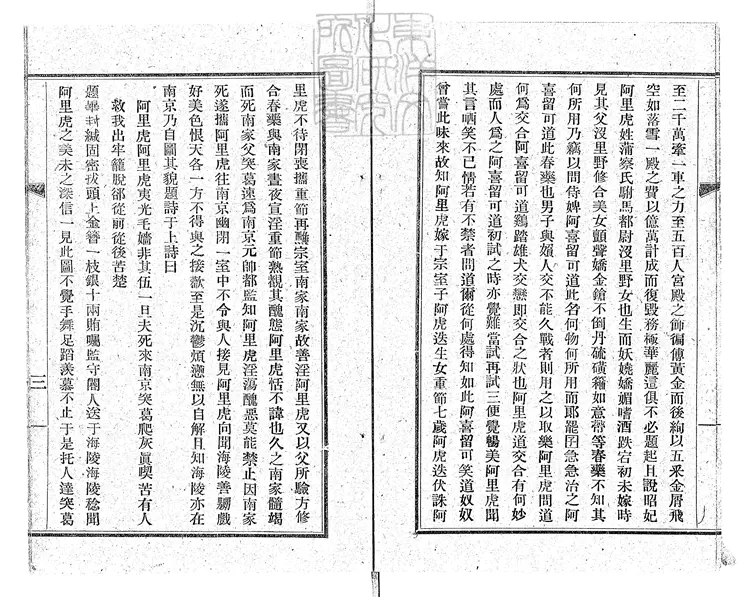 至二千萬牽一車之力至五百人宮殿之飾徧傅黃金而後絢以五釆金屑飛
空如落雪一殿之費以億萬計成而復毀務極華麗這俱不必題起且說昭妃
阿里虎姓蒲察氏駙馬都尉沒里野女也生而妖嬈嬌媚嗜酒跌宕初未嫁時
見其父沒里野修合美女顫聲嬌金鎗不倒丹硫磺箍如意帶等春藥不知其
何所用乃竊以問侍婢阿喜留可道此名何物何所用而耶罷囝急急治之阿
喜留可道此春藥也男子與婦人交不能久戰者則用之以取樂阿里虎問道
何爲交合阿喜留可道鷄踏雄犬交戀即交合之狀也阿里虎道交合有何妙
處而人爲之阿喜留可道初試之時亦覺難當試再試三便覺暢美阿里虎聞
其言哂笑不已情若有不禁者問道爾從何處得知如此阿喜留可笑道奴奴
曾嘗此味來故知阿里虎嫁于宗室子阿虎迭生女重節七歲阿虎迭伏誅阿
里虎不待閉喪攜重節再醮宗室南家南家故善淫阿里虎又以父所驗方修
合春藥與南家晝夜宣淫重節熟覩其醜態阿里虎恬不諱也久之南家髓竭
而死南家父突葛速爲南京元帥都監知阿里虎淫蕩醜惡莫能禁止因南家
死遂攜阿里虎往南京幽閉一室中不令與人接見阿里虎向聞海陵善嬲戲
好美色恨天各一方不得與之接歡至是沉鬱煩懣無以自解且知海陵亦在
南京乃自圖其貌題詩于上詩曰
阿里虎阿里虎夷光毛嬙非其伍一旦夫死來南京突葛爬灰眞喫苦有人
救我出牢籠脫卻從前從後苦楚
題畢封緘固密拔頭上金簪一枝銀十兩賄囑監守閽人送于海陵海陵稔聞
阿里虎之美未之深信一見此圖不覺手舞足蹈羨慕不止于是托人達突葛
三